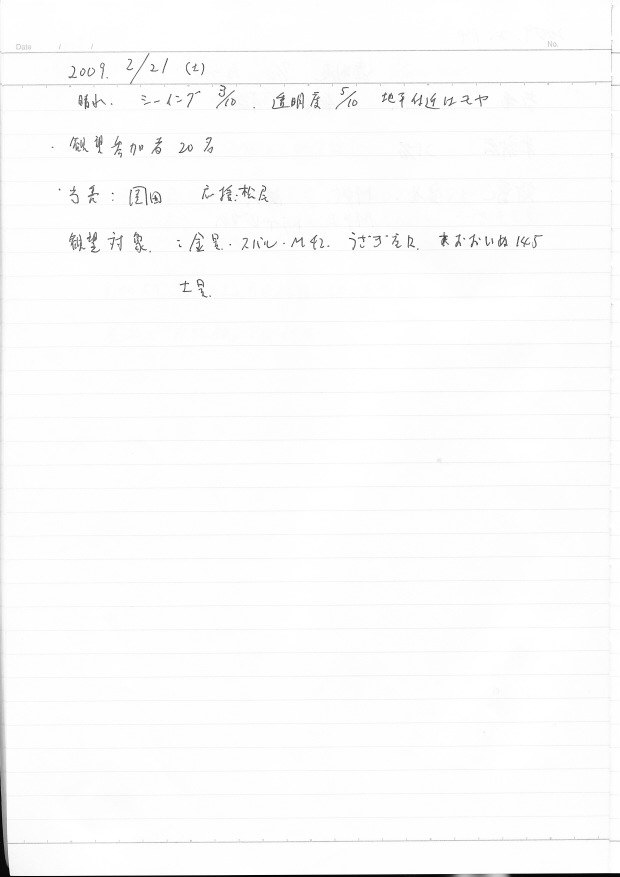 Date / / No.
2009. 2/21 (土)
晴れ. シーイング 3/10. 透明度 5/10 地平付近はモヤ
・観望参加者 20名
・当番: 園田 応援:松尾
観望対象. : 金星・スバル・M42. うさぎ座R. おおいぬ145
土星.